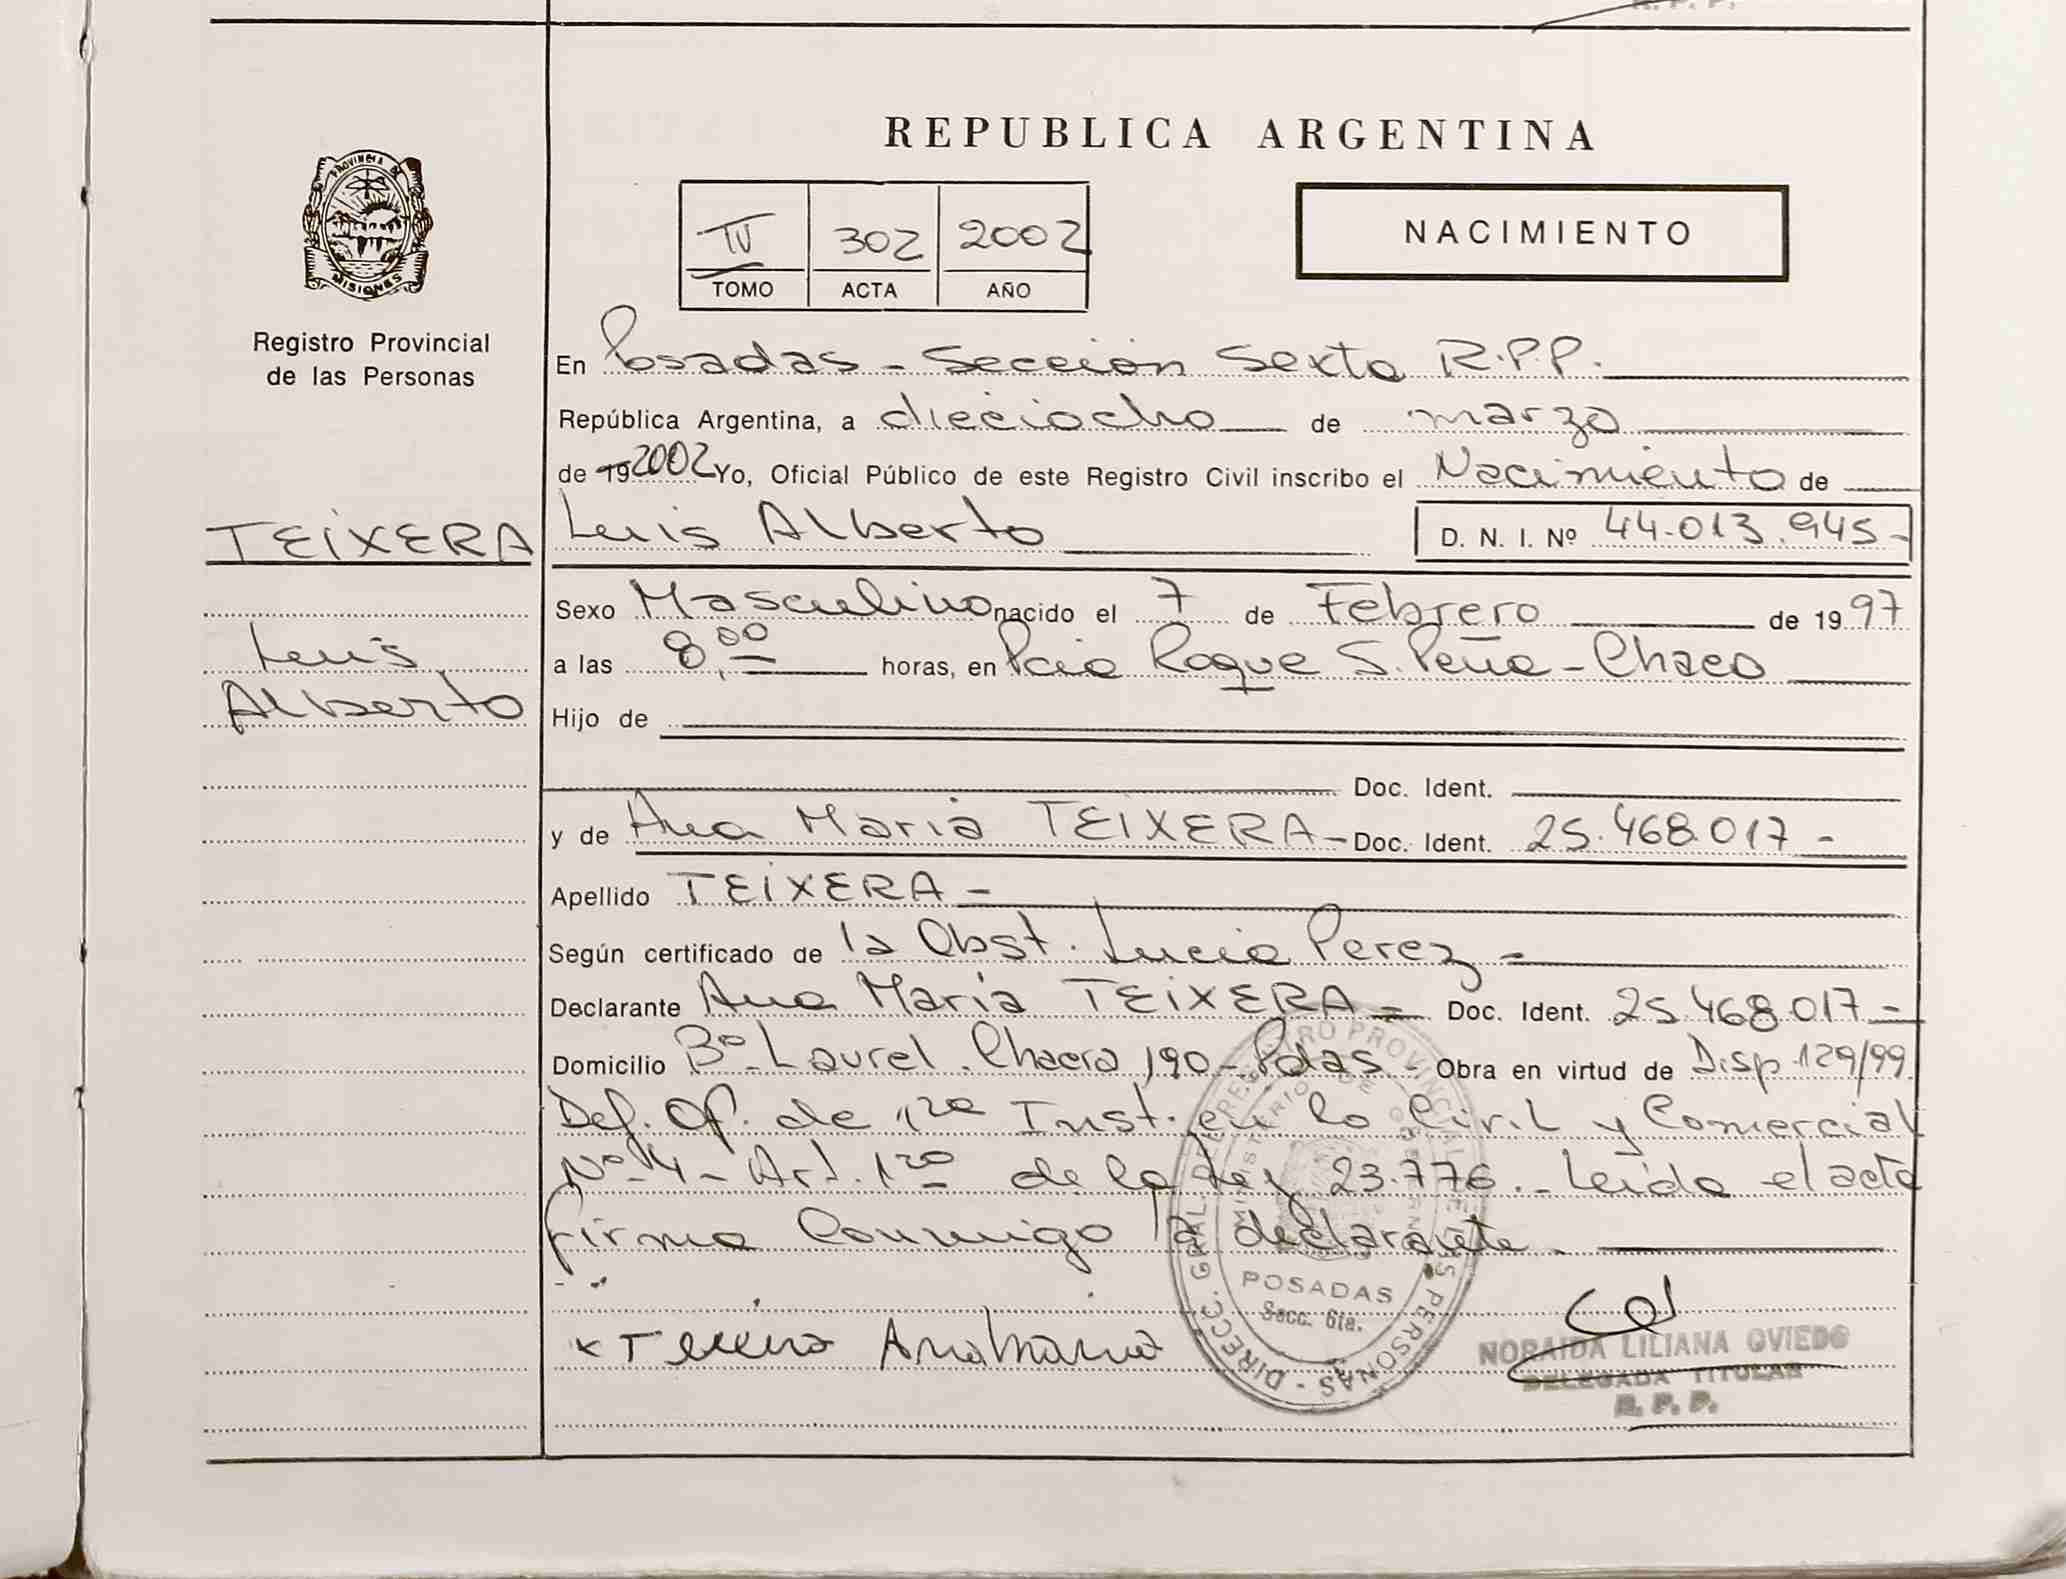 R. P. P.
REPUBLICA ARGENTINA
PROVINCIA DE
MISIONES
IV 302 2002
TOMO ACTA AÑO
NACIMIENTO
Registro Provincial
de las Personas
En Posadas - Sección Sexta R.P.P.
República Argentina, a dieciocho de marzo
de 19 2002 Yo, Oficial Público de este Registro Civil inscribo el Nacimiento de
TEIXERA Luis Alberto D. N. I. Nº 44.013.945-
Sexo Masculino nacido el 7 de Febrero de 1997
Luis
a las 8,00 horas, en Pcia Roque S. Peña - Chaco
Alberto
Hijo de
Doc. Ident.
y de Ana María TEIXERA - Doc. Ident. 25.468.017 -
Apellido TEIXERA -
Según certificado de la Obst. Lucia Perez -
Declarante Ana María TEIXERA - Doc. Ident. 25.468.017 -
Domicilio Bº Laurel. Chacra 190 - Pdas - Obra en virtud de Disp 129/99
Def. Of. de 1ra Inst. en lo Civil y Comercial
Nº 4 - Art. 1ro de la Ley 23.776. - Leida el acta
firma conmigo la declarante.
DIRECC. GRAL. DEL REGISTRO PROVINCIAL DE LAS PERSONAS -
MINISTERIO DE GOBIERNO
POSADAS
Secc. 6ta.
x Texera Ana Maria
NORAIDA LILIANA OVIEDO
DELEGADA TITULAR
R. P. P.